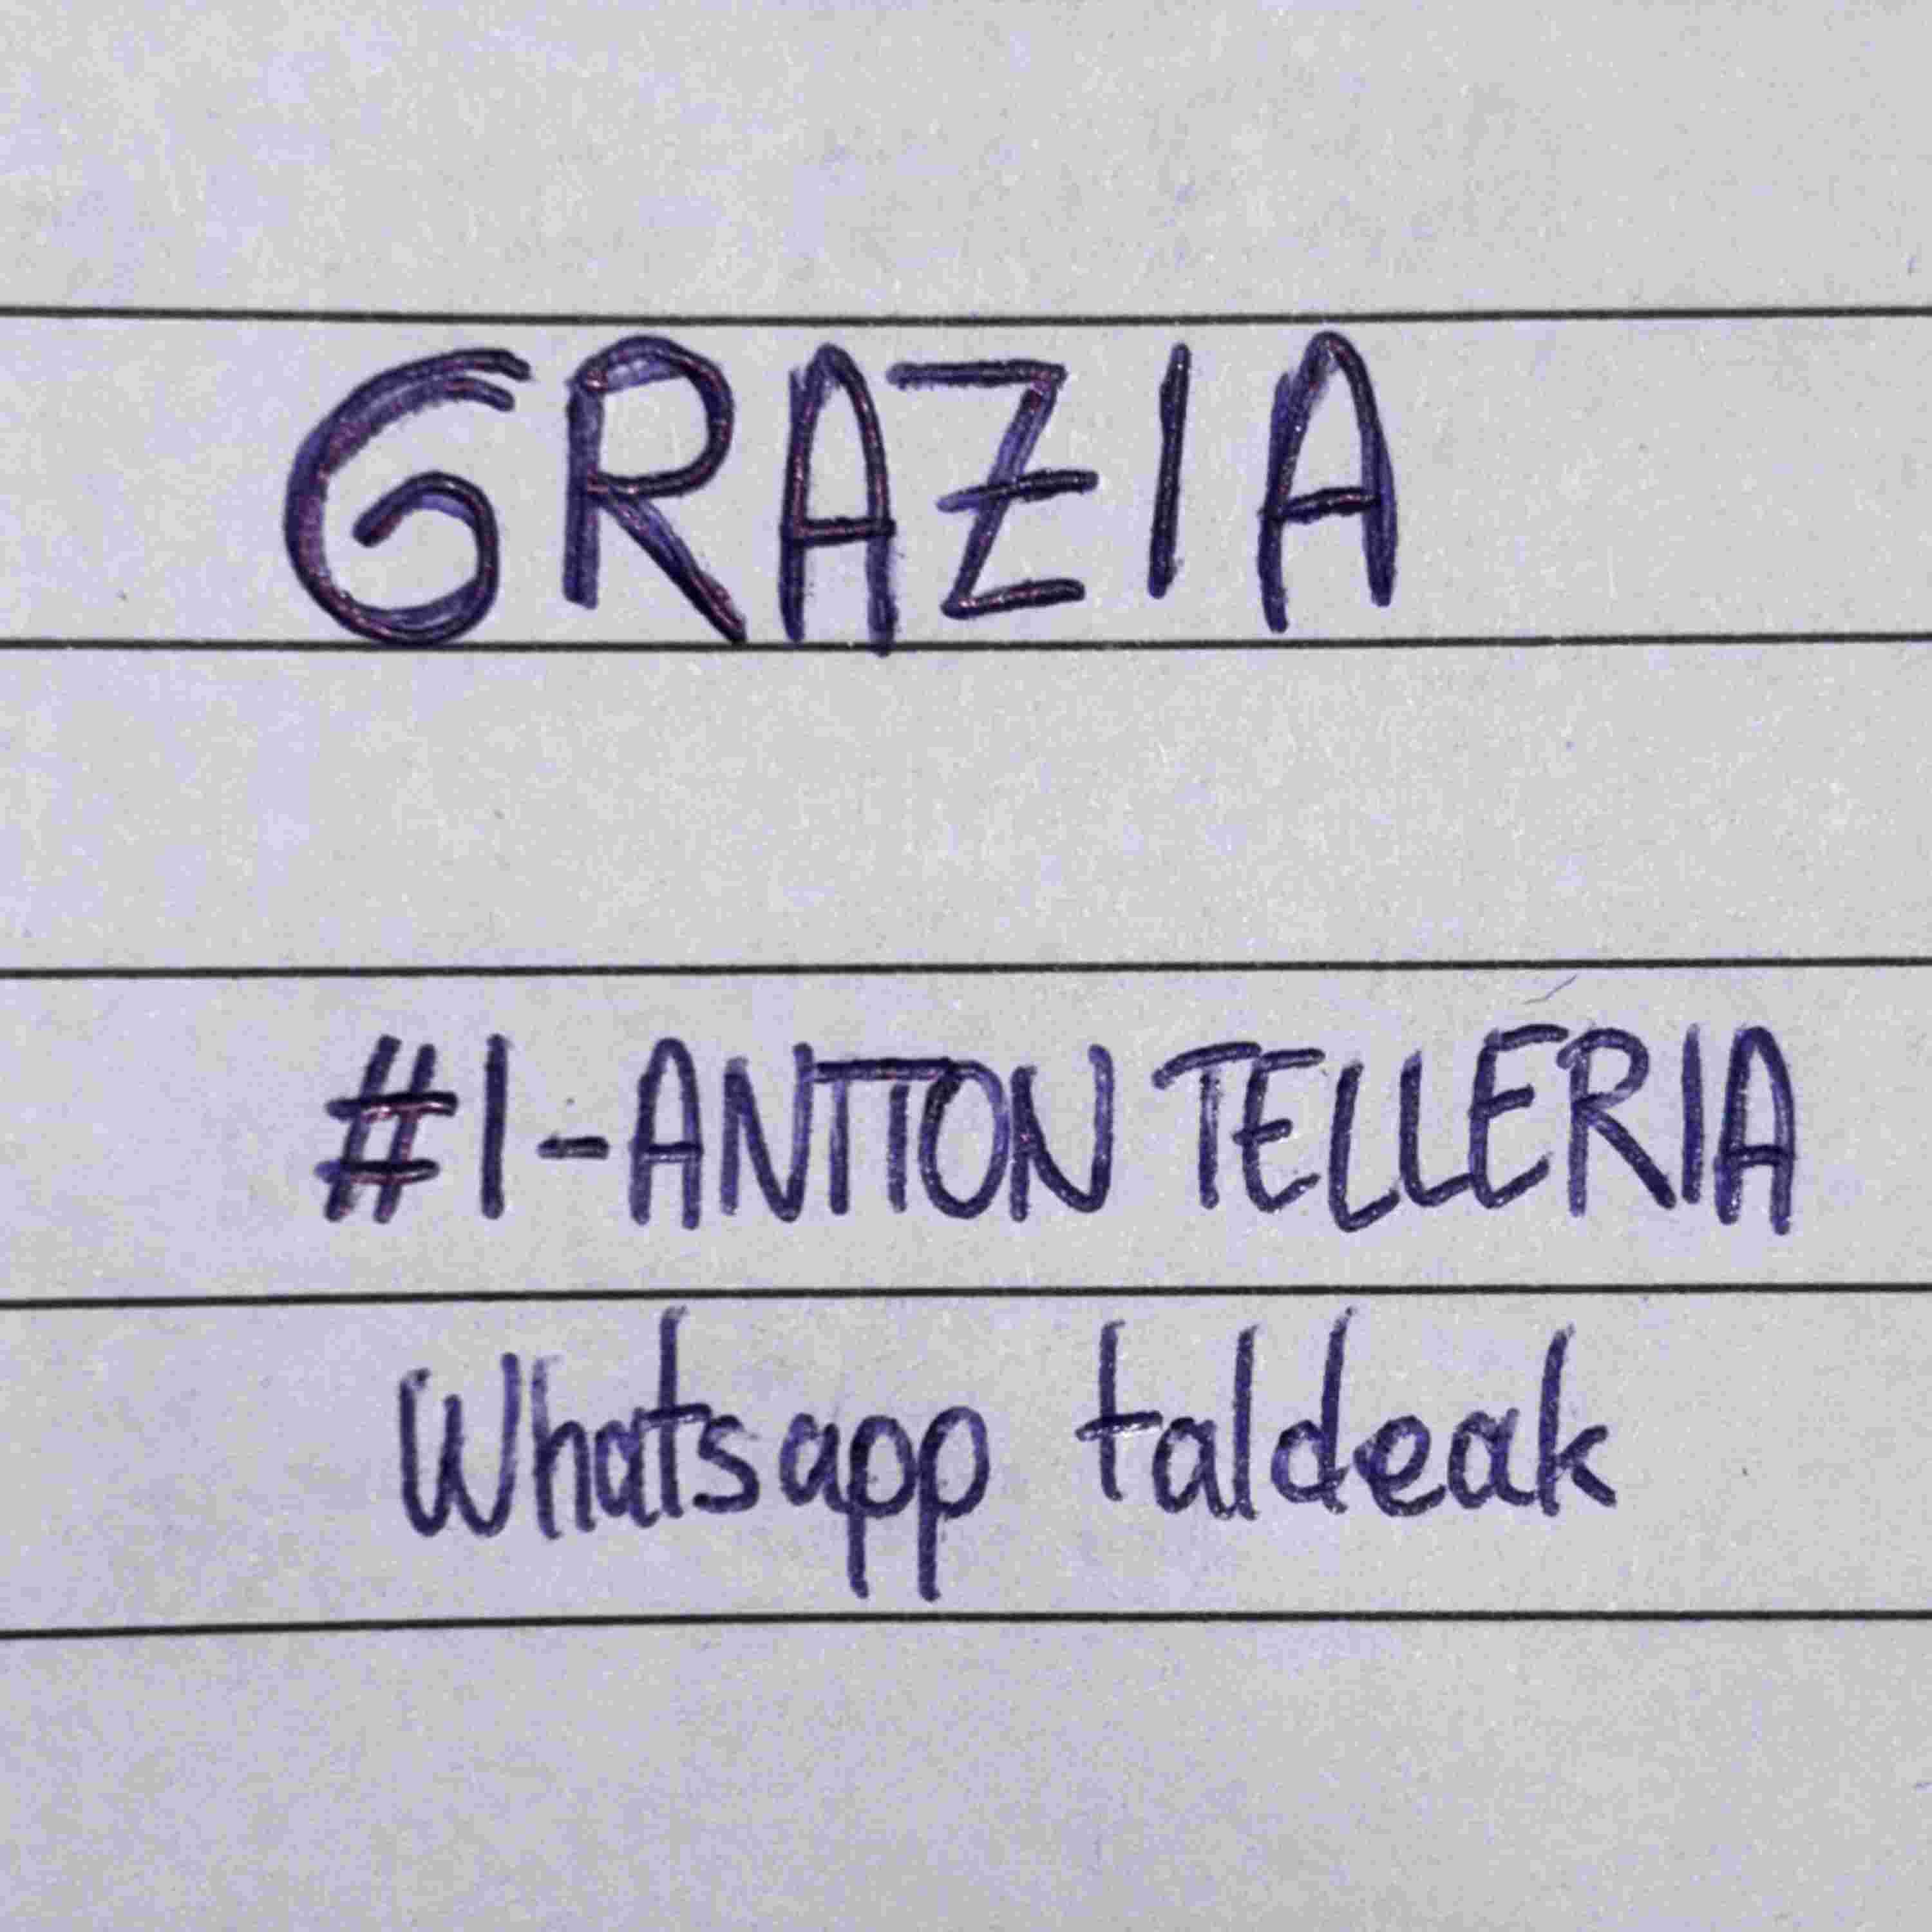 GRAZIA
#1-ANTTON TELLERIA
Whatsapp taldeak